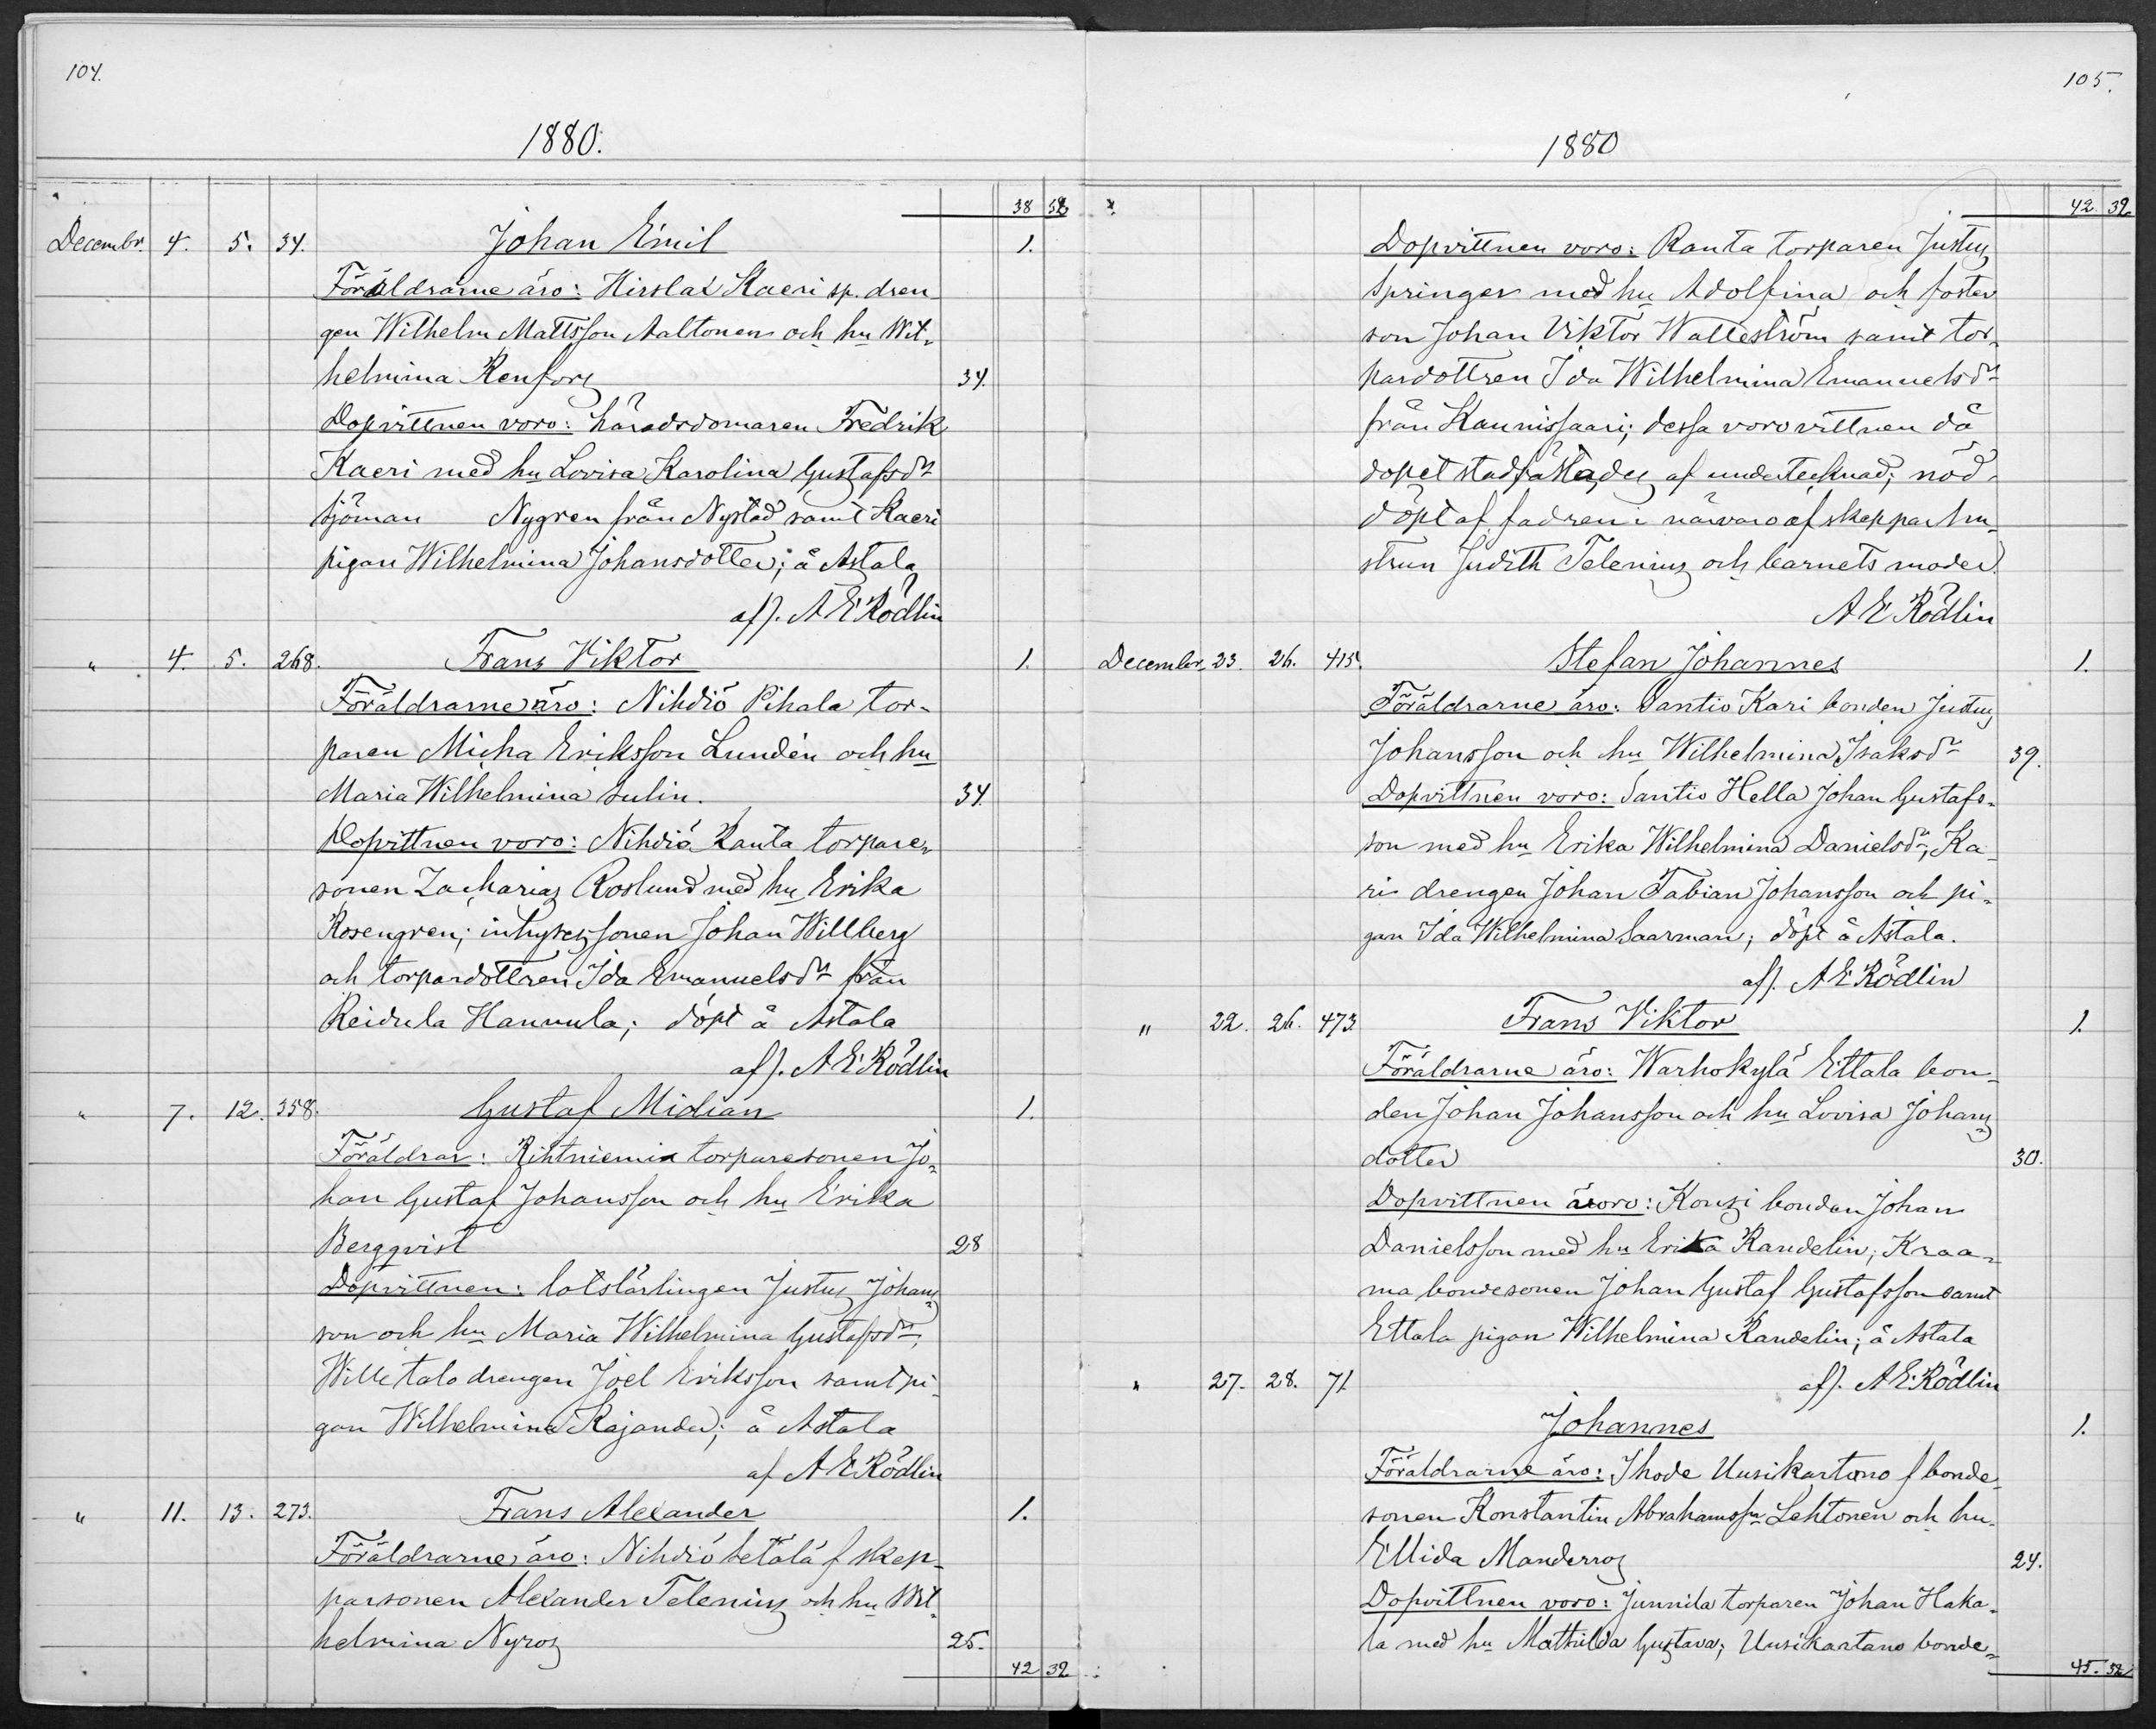 104.
1880.
38 32
Decembr. 4. 5. 34. Johan Emil 1.
Föräldrarne äro: Hirslax Kaeri sp. dren
gen Wilhelm Mattsson Aaltonen och hu Wil-
helmina Renfors 34.
Dopvittnen voro: häradsdomaren Fredrik
Kaeri med hu Lovisa Karolina Gustafsdr
Sjöman Nygren från Nystad samt Kaeri
pigan Wilhelmina Johansdotter; å Astala
af. A E Rödlin
" 4. 5. 268. Frans Viktor 1.
Föräldrarne äro: Nihdiö Pihala tor-
paren Micha Eriksson Lundén och hu
Maria Wilhelmina Sulin. 34.
Dopvittnen voro: Nihdiö Ranta torpare-
sonen Zacharias Roslund med hu Erika
Rosengren; inhysessonen Johan Willberg
och torpardottren Ida Emanuelsdr från
Reidula Hannula; döpt å Astala
af. A E Rödlin
" 7. 12. 358. Gustaf Midian 1.
Föräldrar: Rihtniemis torparesonen Jo-
han Gustaf Johansson och hu Erika
Bergqvist 28
Dopvittnen: lotslärlingen Justus Johans
son och hu Maria Wilhelmina Gustafsdr,
Wille talo drengen Joel Eriksson samt pi-
gan Wilhelmina Kajander; å Astala
af A E Rödlin
" 11. 13. 273. Frans Alexander 1.
Föräldrarne äro: Nihdiö Setälä f skep-
parsonen Alexander Telenius och hu Wil-
helmina Nyros 25.
42 32
105.
1880
42. 32
Dopvittnen voro: Ranta torparen Justus
Springer med hu Adolfina och foster
son Johan Viktor Walleström samt tor-
pardottren Ida Wilhelmina Emanuelsdr
från Kaunissaari; dessa voro vittnen då
dopet stadfästades af undertecknad; nöd-
döpt af fadren i närvaro af skepparhu-
strun Judith Telenius och barnets moder.
A E Rödlin
Decembr. 23. 26. 415. Stefan Johannes 1.
Föräldrarne äro: Santio Kari bonden Justus
Johansson och hu Wilhelmina Isaksdr 39.
Dopvittnen voro: Santio Hella Johan Gustafs-
son med hu Erika Wilhelmina Danielsdr, Ka-
ri drengen Johan Fabian Johansson och pi-
gan Ida Wilhelmina Saarman; döpt å Astala.
af. A E Rödlin
" 22. 26. 473 Frans Viktor 1.
Föräldrarne äro: Warhokylä Ettala bon-
den Johan Johansson och hu Lovisa Johans
dotter 30.
Dopvittnen voro: Konsi bonden Johan
Danielsson med hu Erika Randelin, Kraa-
ma bondesonen Johan Gustaf Gustafsson samt
Ettala pigan Wilhelmina Randelin; å Astala
" 27. 28. 71 af. A E Rödlin
Johannes 1.
Föräldrarne äro: Ihode Uusikartano f bonde-
sonen Konstantin Abrahamsson Lehtonen och hu
Ellida Manderros 24.
Dopvittnen voro: Junnila torparen Johan Haka-
la med hu Mathilda Gustava; Uusikartano bonde-
45. 32